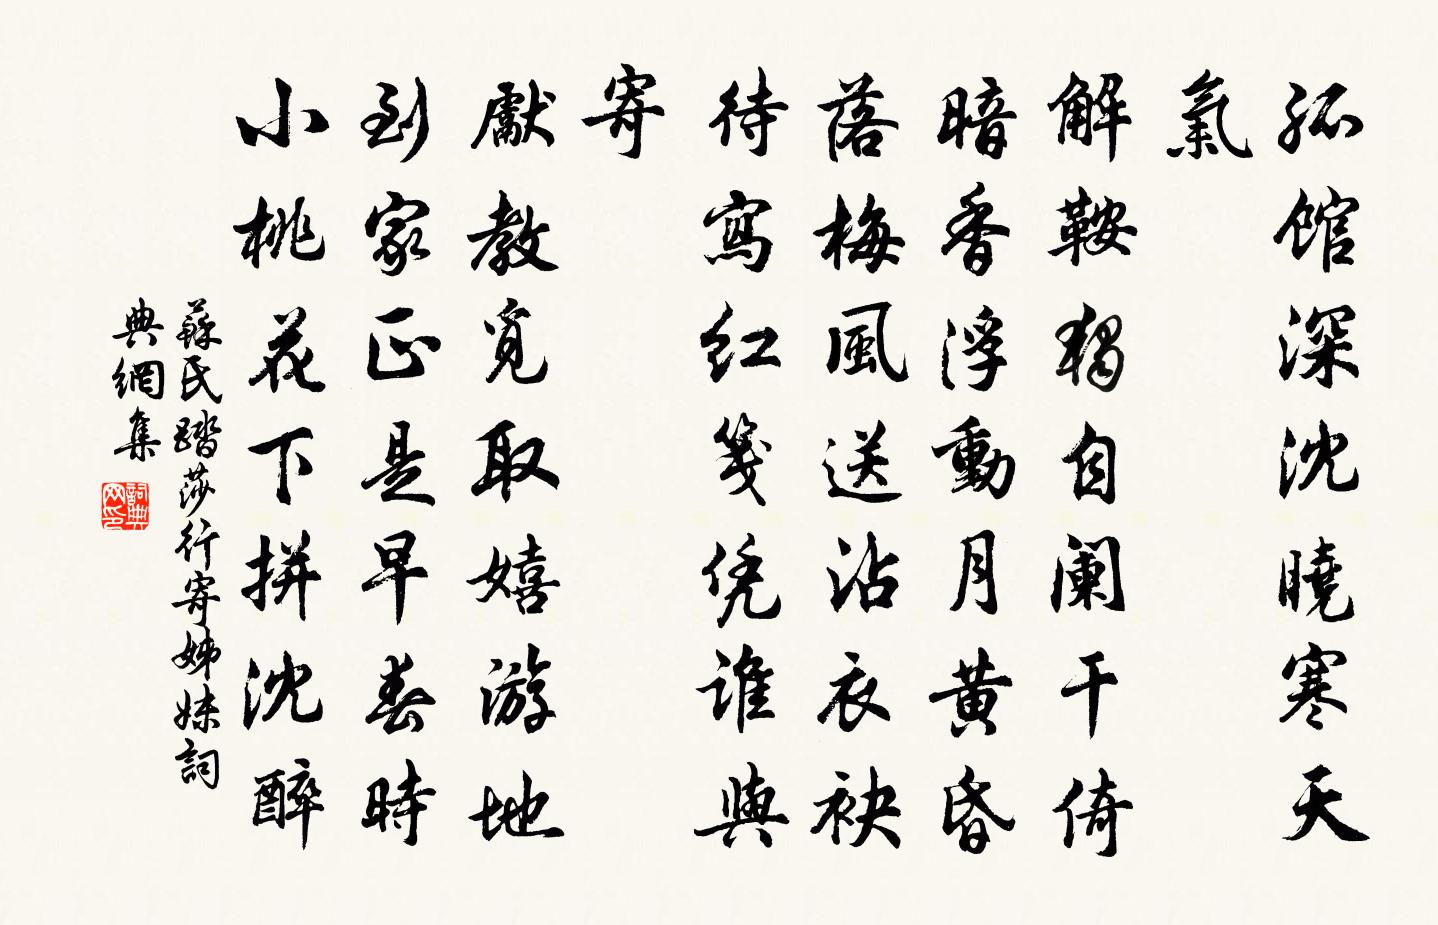 孤館深沈曉寒天
氣
解鞍獨自闌干倚
暗香浮動月黃昏
落梅風送沾衣袂
待寫紅箋凭誰與
寄
獻教覓取嬉游地
到家正是早春時
小桃花下拼沈醉
蘇氏踏莎行寄姊妹詞
典網集
詞典网印